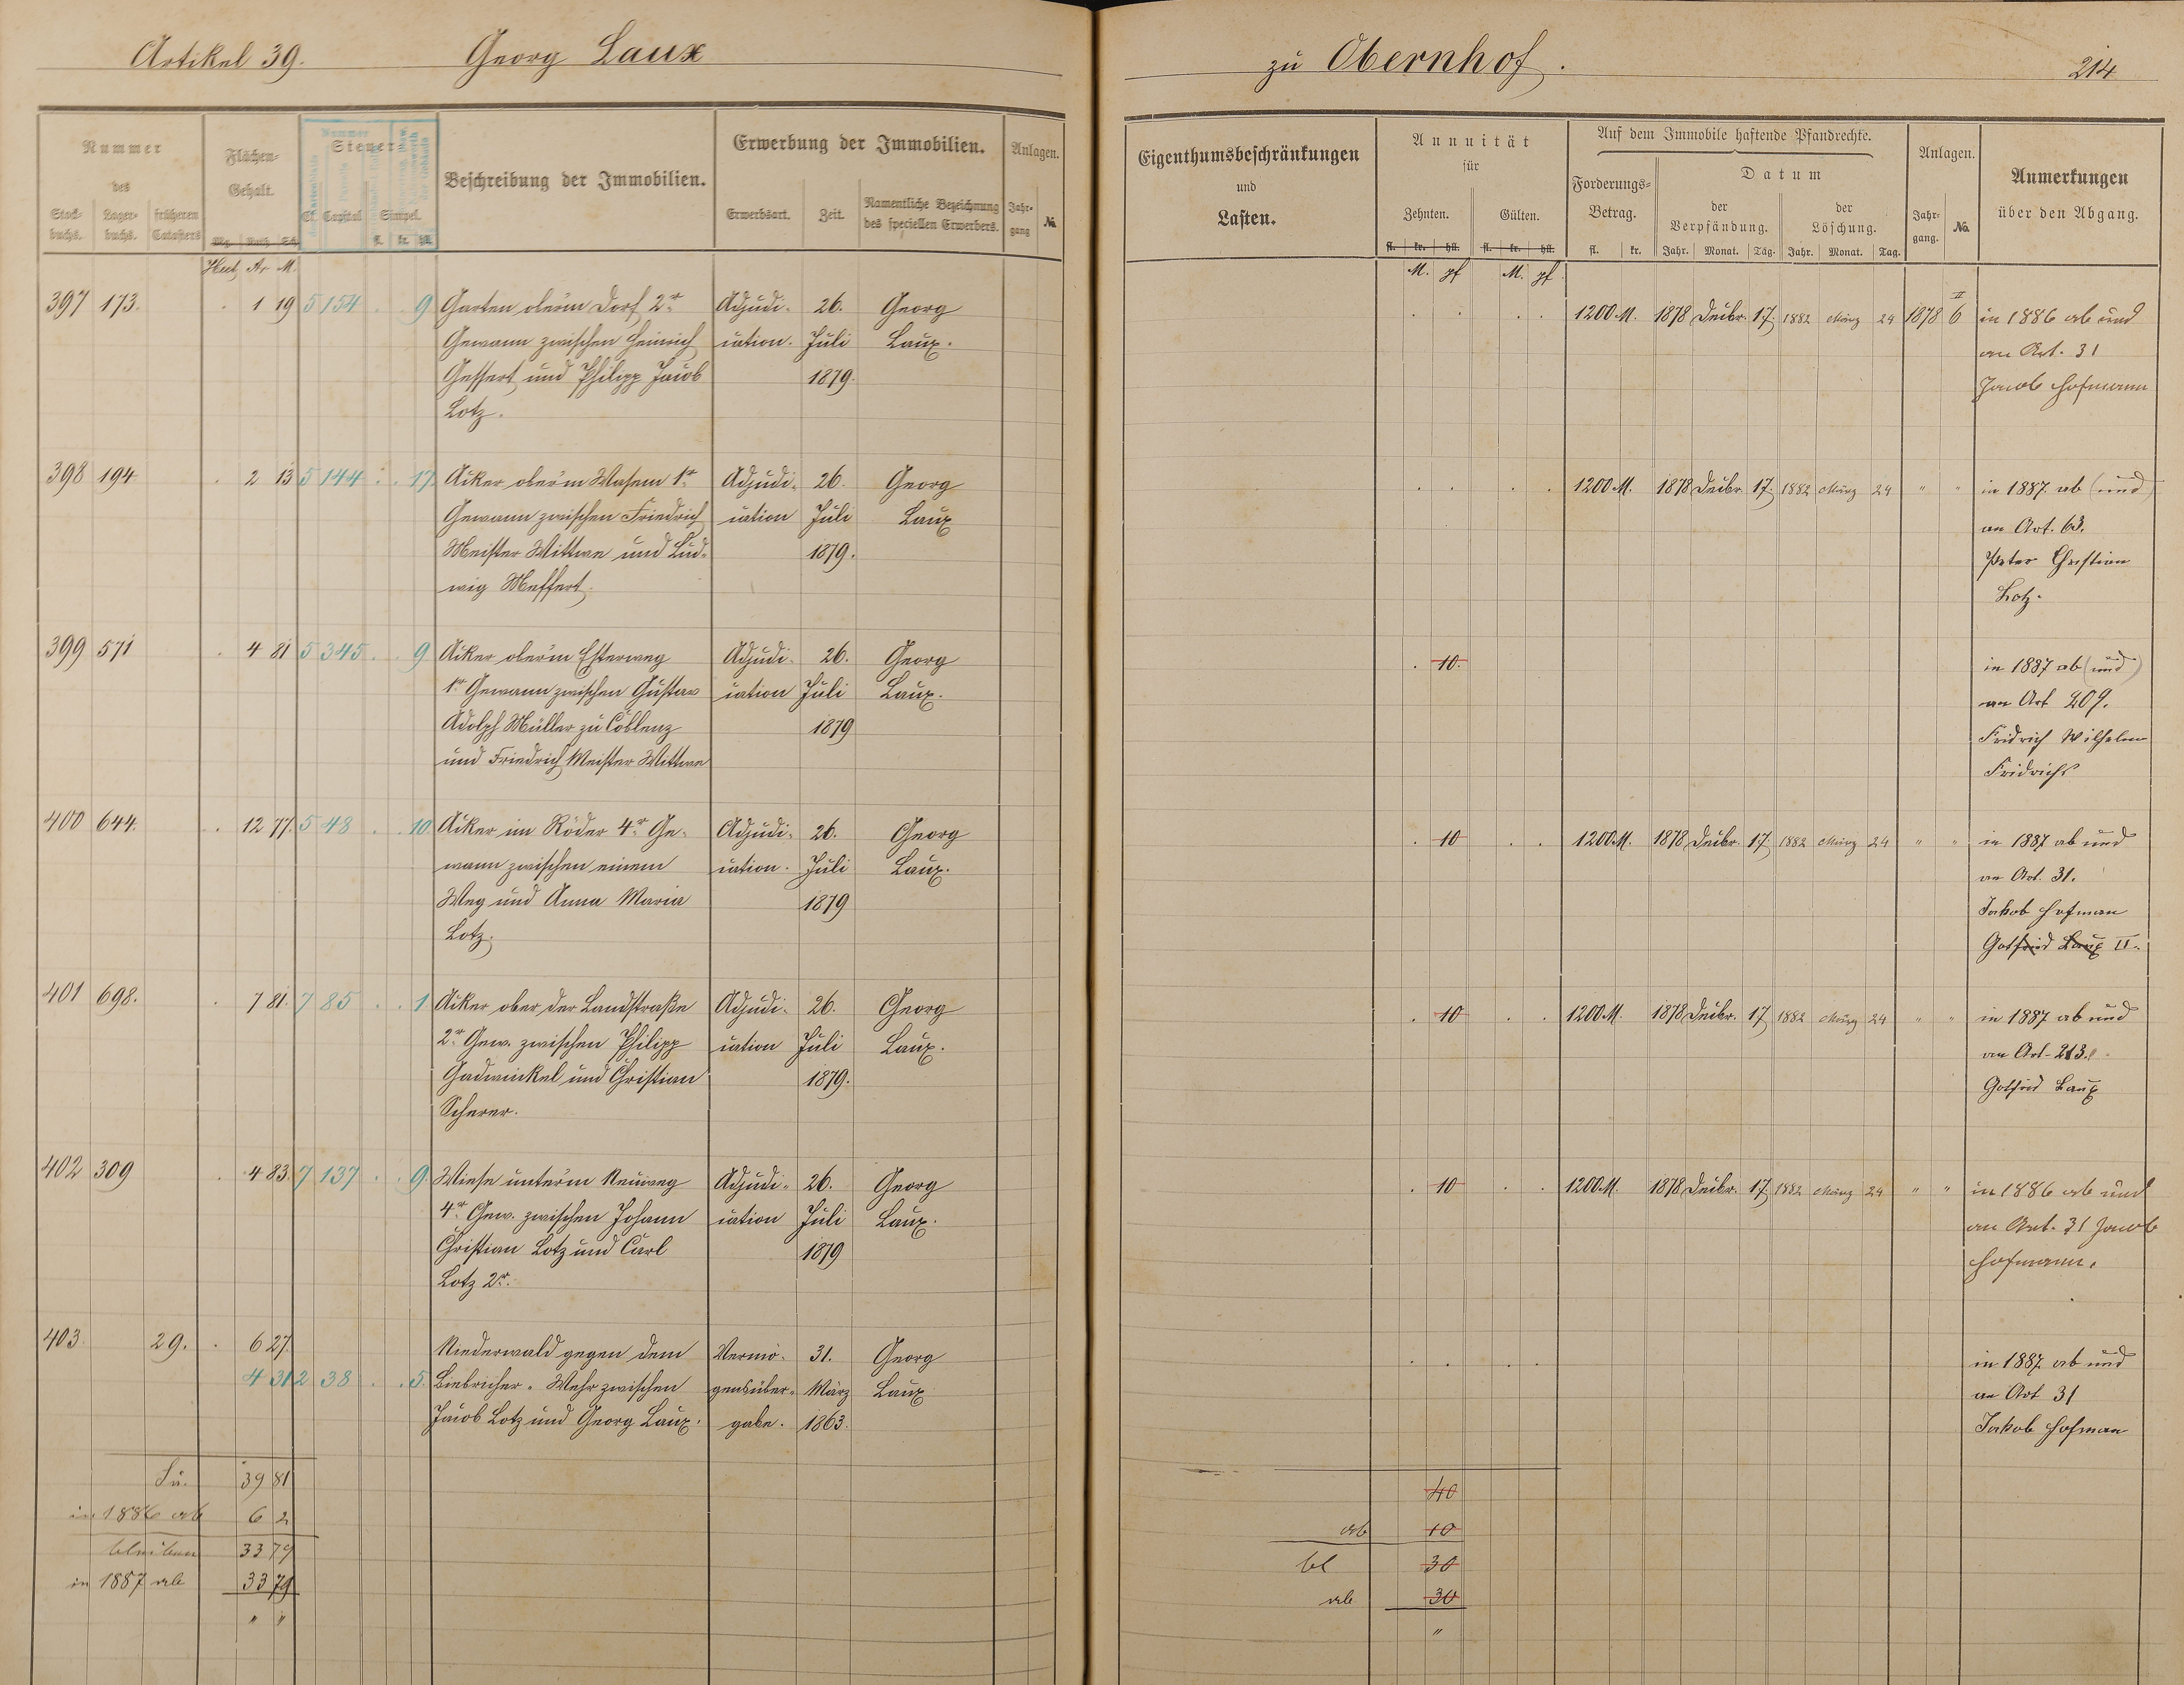 Artikel 39. Georg Laux
zu Obernhof. 214
Nummer
des
Stock-
buchs.
Lager-
buchs.
früheren
Catasters
Flächen-
Gehalt.
Mg. Ruth. Sch.
Hect Ar M.
Steuer
Nummer
Cl. Capital Simpel.
fl. kr. hll.
Beschreibung der Immobilien.
Erwerbung der Immobilien.
Erwerbsart. Zeit.
Namentliche Bezeichnung
des speciellen Erwerbers.
Anlagen.
Jahr-
gang
No.
Eigenthumsbeschränkungen
und
Lasten.
Annuität
für
Zehnten. Gülten.
fl. kr. hll. fl. kr. hll.
M. pf M. pf
Auf dem Immobile haftende Pfandrechte.
Forderungs-
Betrag.
fl. kr.
Datum
der
Verpfändung.
Jahr. Monat. Tag.
der
Löschung.
Jahr. Monat. Tag.
Anlagen.
Jahr-
gang.
No.
Anmerkungen
über den Abgang.
397 173. 1 19 5 154 9 Garten oberm Dorf 2r Adjudi- 26. Georg
Gewann zwischen Heinrich cation. Juli Laux.
Gessert und Philipp Jacob 1879.
Lotz.
1200 M. 1878 Decbr. 17. 1882 März 24 1878 II 6 in 1886 ab und
an Art. 31
Jacob Hofmann
398 194 2 13 5 144 17 Acker oberm Wasem 1r Adjudi- 26. Georg
Gewann zwischen Friedrich cation Juli Laux
Meister Wittwe und Lud- 1879.
wig Meffert.
1200 M. 1878 Decbr. 17. 1882 März 24 " " in 1887 ab (und)
an Art. 63.
Peter Christian
Lotz.
399 571 4 81 5 345 9 Acker oberm Esterweg Adjudi- 26. Georg
1r Gewann zwischen Gustav cation Juli Laux.
Adolph Müller zu Coblenz 1879
und Friedrich Meister Wittwe
10. in 1887 ab (und)
an Art 209.
Fridrich Wilhelm
Fridrichs
400 644. 12 77. 5 48 10. Acker im Röder 4r Ge- Adjudi- 26. Georg
wann zwischen einem cation. Juli Laux.
Weg und Anna Maria 1879
Lotz.
10 1200 M. 1878 Decbr. 17. 1882 März 24 " " in 1887 ab und
an Art. 31.
Jakob Hofman
Gotfried Laux II.
401 698. 7 81. 7 85 1 Acker ober der Landstraße Adjudi- 26. Georg
2r Gew. zwischen Philipp cation Juli Laux.
Gadwinkel und Christian 1879.
Scherer.
10 1200 M. 1878 Decbr. 17 1882 März 24 " " in 1887 ab und
an Art. 213.
Gotfried Laux
402 309 4 83. 7 137 9. Wiese unterm Reuweg Adjudi- 26. Georg
4r Gew. zwischen Johann cation Juli Laux.
Christian Lotz und Carl 1879
Lotz 2r.
10 1200 M. 1878 Decbr. 17 1882 März 24 " " in 1886 ab und
an Art. 31 Jacob
Hofmann.
403. 29. 6 27. Niederwald gegen dem Vermö- 31. Georg
4 31 2 38 5. Biebricher-Wehr zwischen gensüber- März Laux
Jacob Lotz und Georg Laux. gabe. 1863.
in 1887 ab und
an Art 31
Jakob Hofman
Su. 39 81
in 1886 ab 6 2
bleiben 33 79
in 1887 ab 33 79
" "
40
ab 10
bl 30
ab 30
"